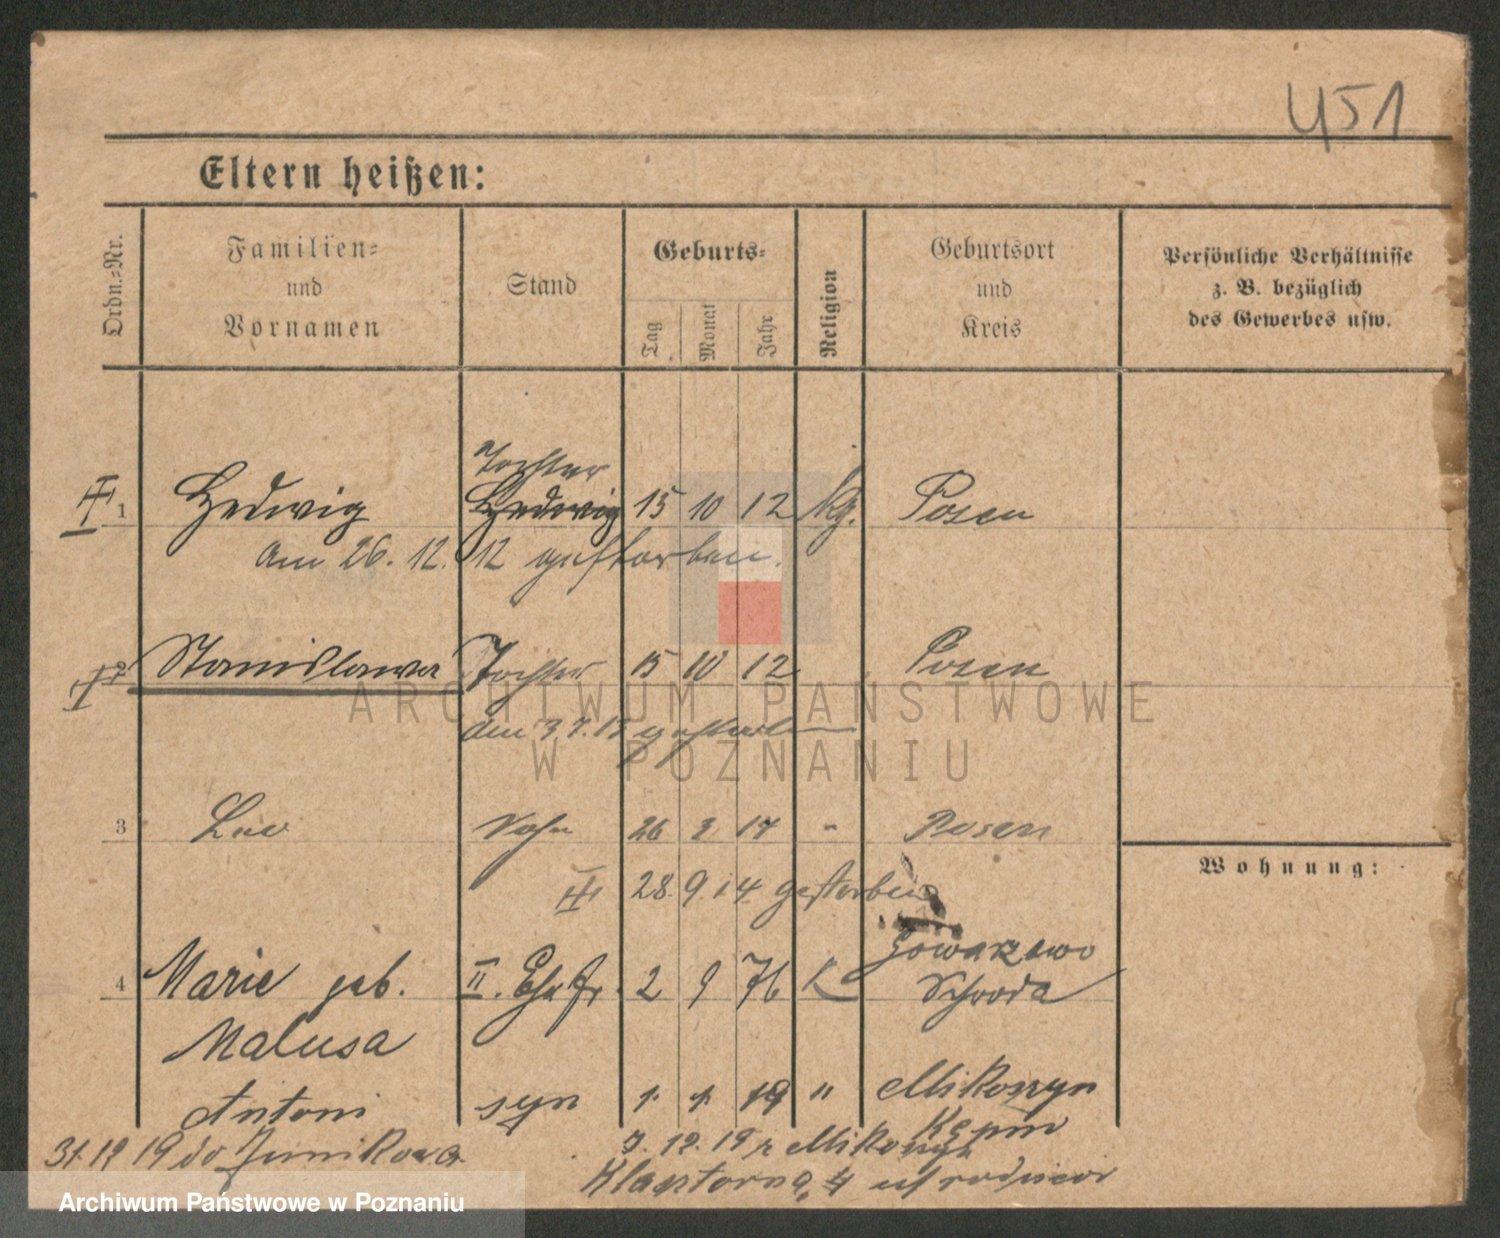 451
Eltern heißen:
Ordn.-Nr.
Familien-
und
Vornamen
Stand
Geburts-
Tag
Monat
Jahr
Religion
Geburtsort
und
Kreis
Persönliche Verhältnisse
z. B. bezüglich
des Gewerbes usw.
Tochter
1 Hedwig Hedwig 15 10 12 kg. Posen
am 26. 12. 12 gestorben.
2 Stanislawa Tochter 15 10 12 Posen
am 3 7. 13 gestorben
3 Leo Sohn 26 3 14 " Posen
28. 9. 14 gestorben
Wohnung:
4 Marie geb. II. Ehefr. 2 9 76 K Schroda
Malusa
Antoni syn 1. 1. 19 " Mikorzyn
Kępin
31. 12 19 do Junikowa
7. 12. 19 z Mikorzyn
Klasztorna 4
ARCHIWUM PAŃSTWOWE
W POZNANIU
Archiwum Państwowe w Poznaniu